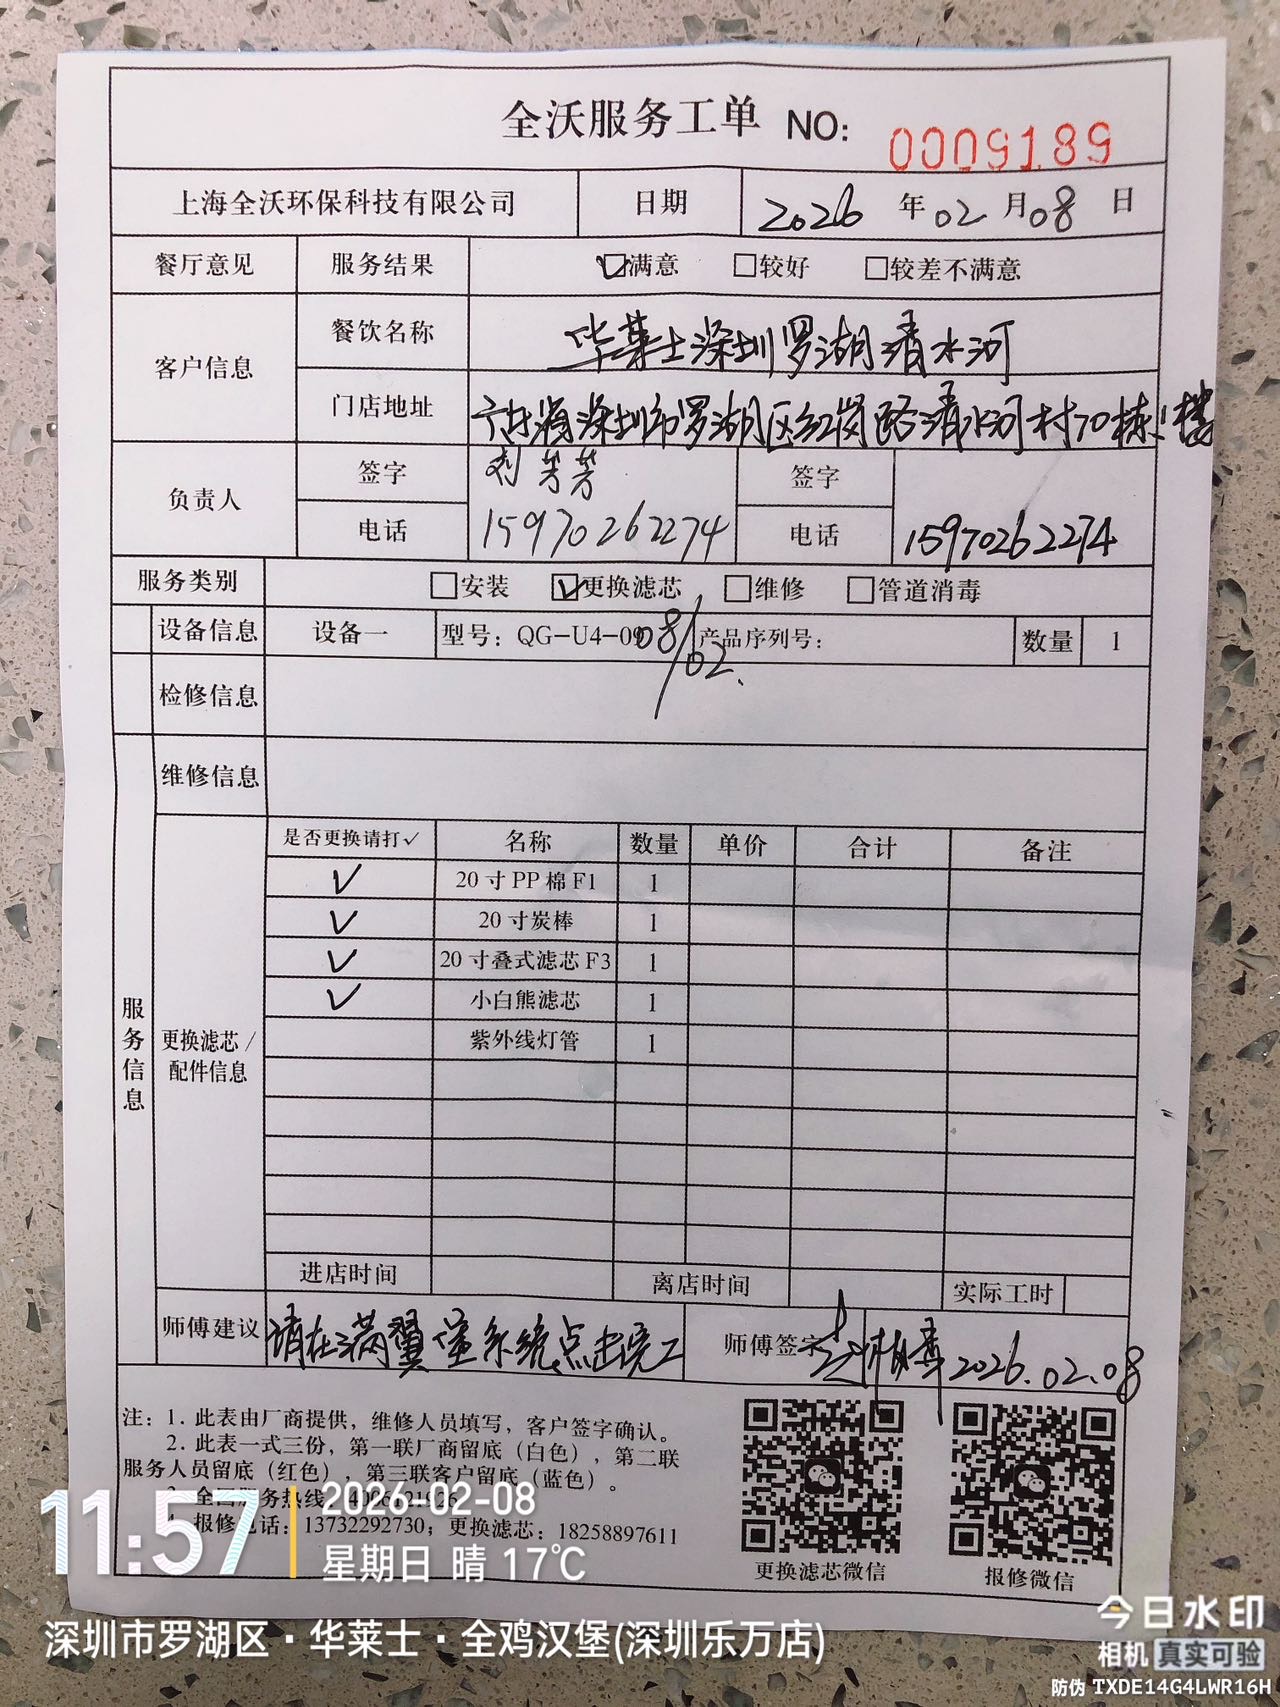 全沃服务工单 NO: 0009189
上海全沃环保科技有限公司 日期 2026 年 02 月 08 日
餐厅意见 服务结果 ☑满意 □较好 □较差不满意
客户信息 餐饮名称 华莱士深圳罗湖清水河
门店地址 广东省深圳市罗湖区红岗路清水河村70栋1楼
负责人 签字 刘芳芳 签字
电话 15970262274 电话 15970262274
服务类别 □安装 ☑更换滤芯 □维修 □管道消毒
设备信息 设备一 型号: QG-U4-09 08/02. 产品序列号: 数量 1
检修信息
维修信息
服务信息
更换滤芯/配件信息
是否更换请打✓ 名称 数量 单价 合计 备注
✓ 20寸PP棉F1 1
✓ 20寸炭棒 1
✓ 20寸叠式滤芯F3 1
✓ 小白熊滤芯 1
紫外线灯管 1
进店时间 离店时间 实际工时
师傅建议 请在满翼堡系统点击完工 师傅签字 2026.02.08
注: 1. 此表由厂商提供，维修人员填写，客户签字确认。
2. 此表一式三份，第一联厂商留底（白色），第二联
服务人员留底（红色），第三联客户留底（蓝色）。
3. 全国服务热线
4. 报修电话: 13732292730; 更换滤芯: 18258897611
更换滤芯微信 报修微信
11:57 2026-02-08
星期日 晴 17℃
深圳市罗湖区·华莱士·全鸡汉堡(深圳乐万店)
今日水印
相机 真实可验
防伪 TXDE14G4LWR16H